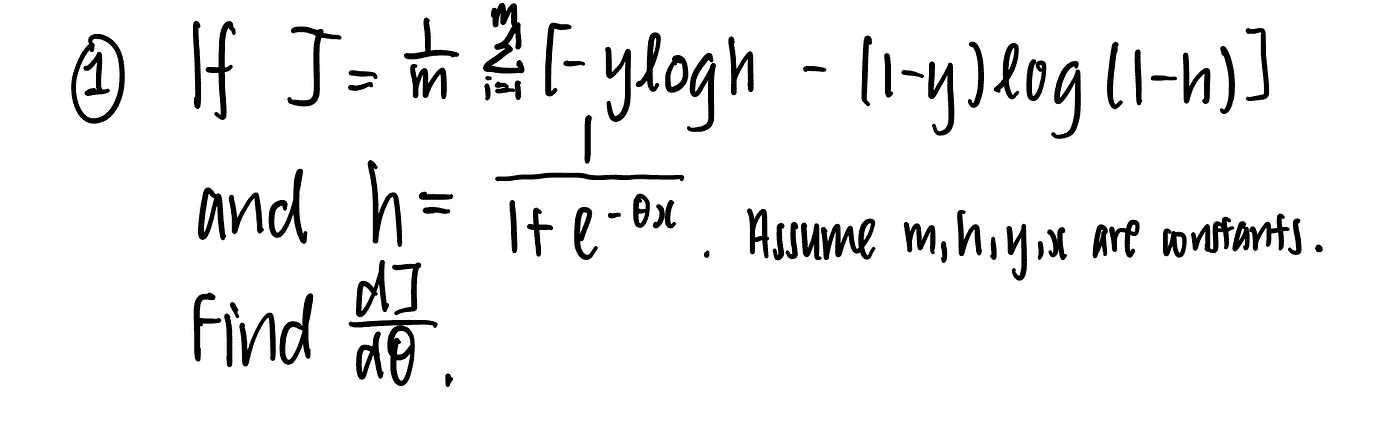 ① If J = 1/m Σ_{i=1}^{m} [-ylogh - (1-y)log(1-h)]
and h = 1/(1+e^{-θx}). Assume m,h,y,x are constants.
Find dJ/dθ.